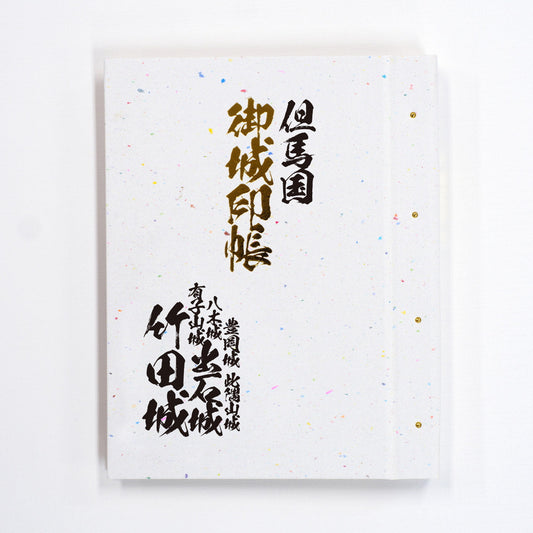 但馬国
御城印帳
豊岡城 此隅山城
八木城 出石城
有子山城 竹田城